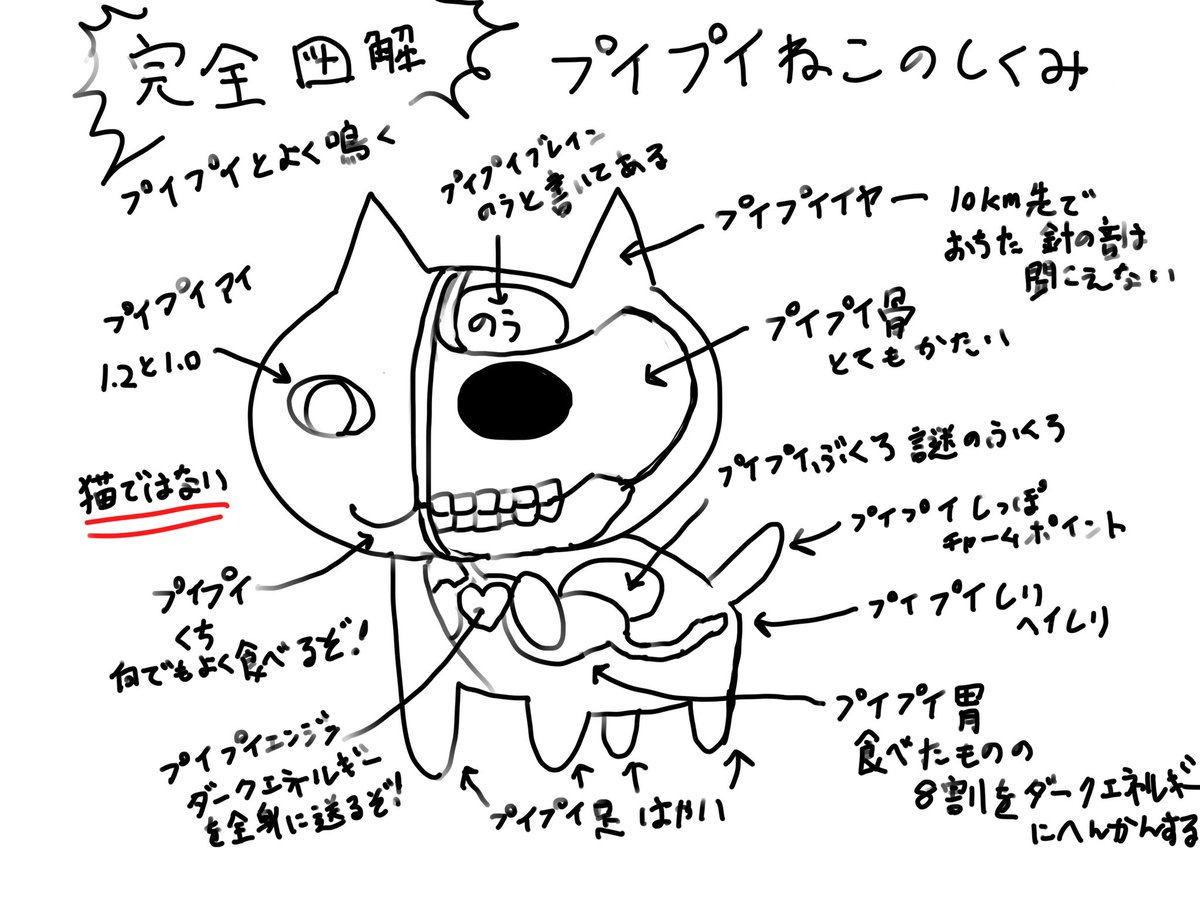 完全図解
プイプイねこのしくみ
プイプイとよく鳴く
プイプイブレイン
のうと書いてある
プイプイイヤー 10km先で
おちた針の音は
聞こえない
プイプイアイ
1.2と1.0
のう
プイプイ骨
とてもかたい
プイプイぶくろ 謎のふくろ
猫ではない
プイプイしっぽ
チャームポイント
プイプイ
くち
何でもよく食べるぞ!
プイプイしり
ヘイしり
プイプイエンジン
ダークエネルギー
を全身に送るぞ!
プイプイ足 はやい
プイプイ胃
食べたものの
8割をダークエネルギー
にへんかんする